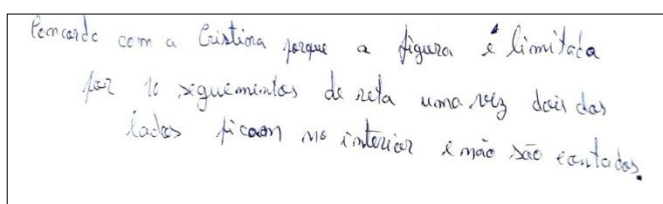 Concordo com a Cristina porque a figura é limitada
por 10 seguemintos de reta uma vez dois dos
lados ficam no interior e não são contados.